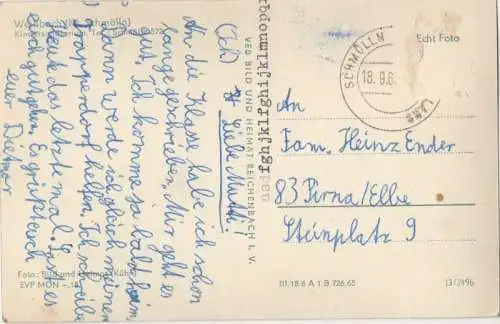 Wettelsbach (Kr. Schmölln)
(Ich) Liebe Mutti!
An die Klasse habe ich schon
lange geschrieben. Mir geht es
gut. Ich komme ja bald heim.
Dann werde ich gleich meinen
Trapperdorf helfen. Ich schreibe
heut das letzte mal. Laßt es
euch gutgehen, Es grüßt euch
euer Dietmar
Foto: Bild und Heimat (Kühn)
EVP MDN -,18
VEB BILD UND HEIMAT REICHENBACH I. V.
fghjklfghijklmnopqr
SCHMÖLLN
18.9.6
Echt Foto
An
Fam. Heinz Ender
83 Pirna/Elbe
Steinplatz 9
III/18-6 A 1 B 726.65
13/2496